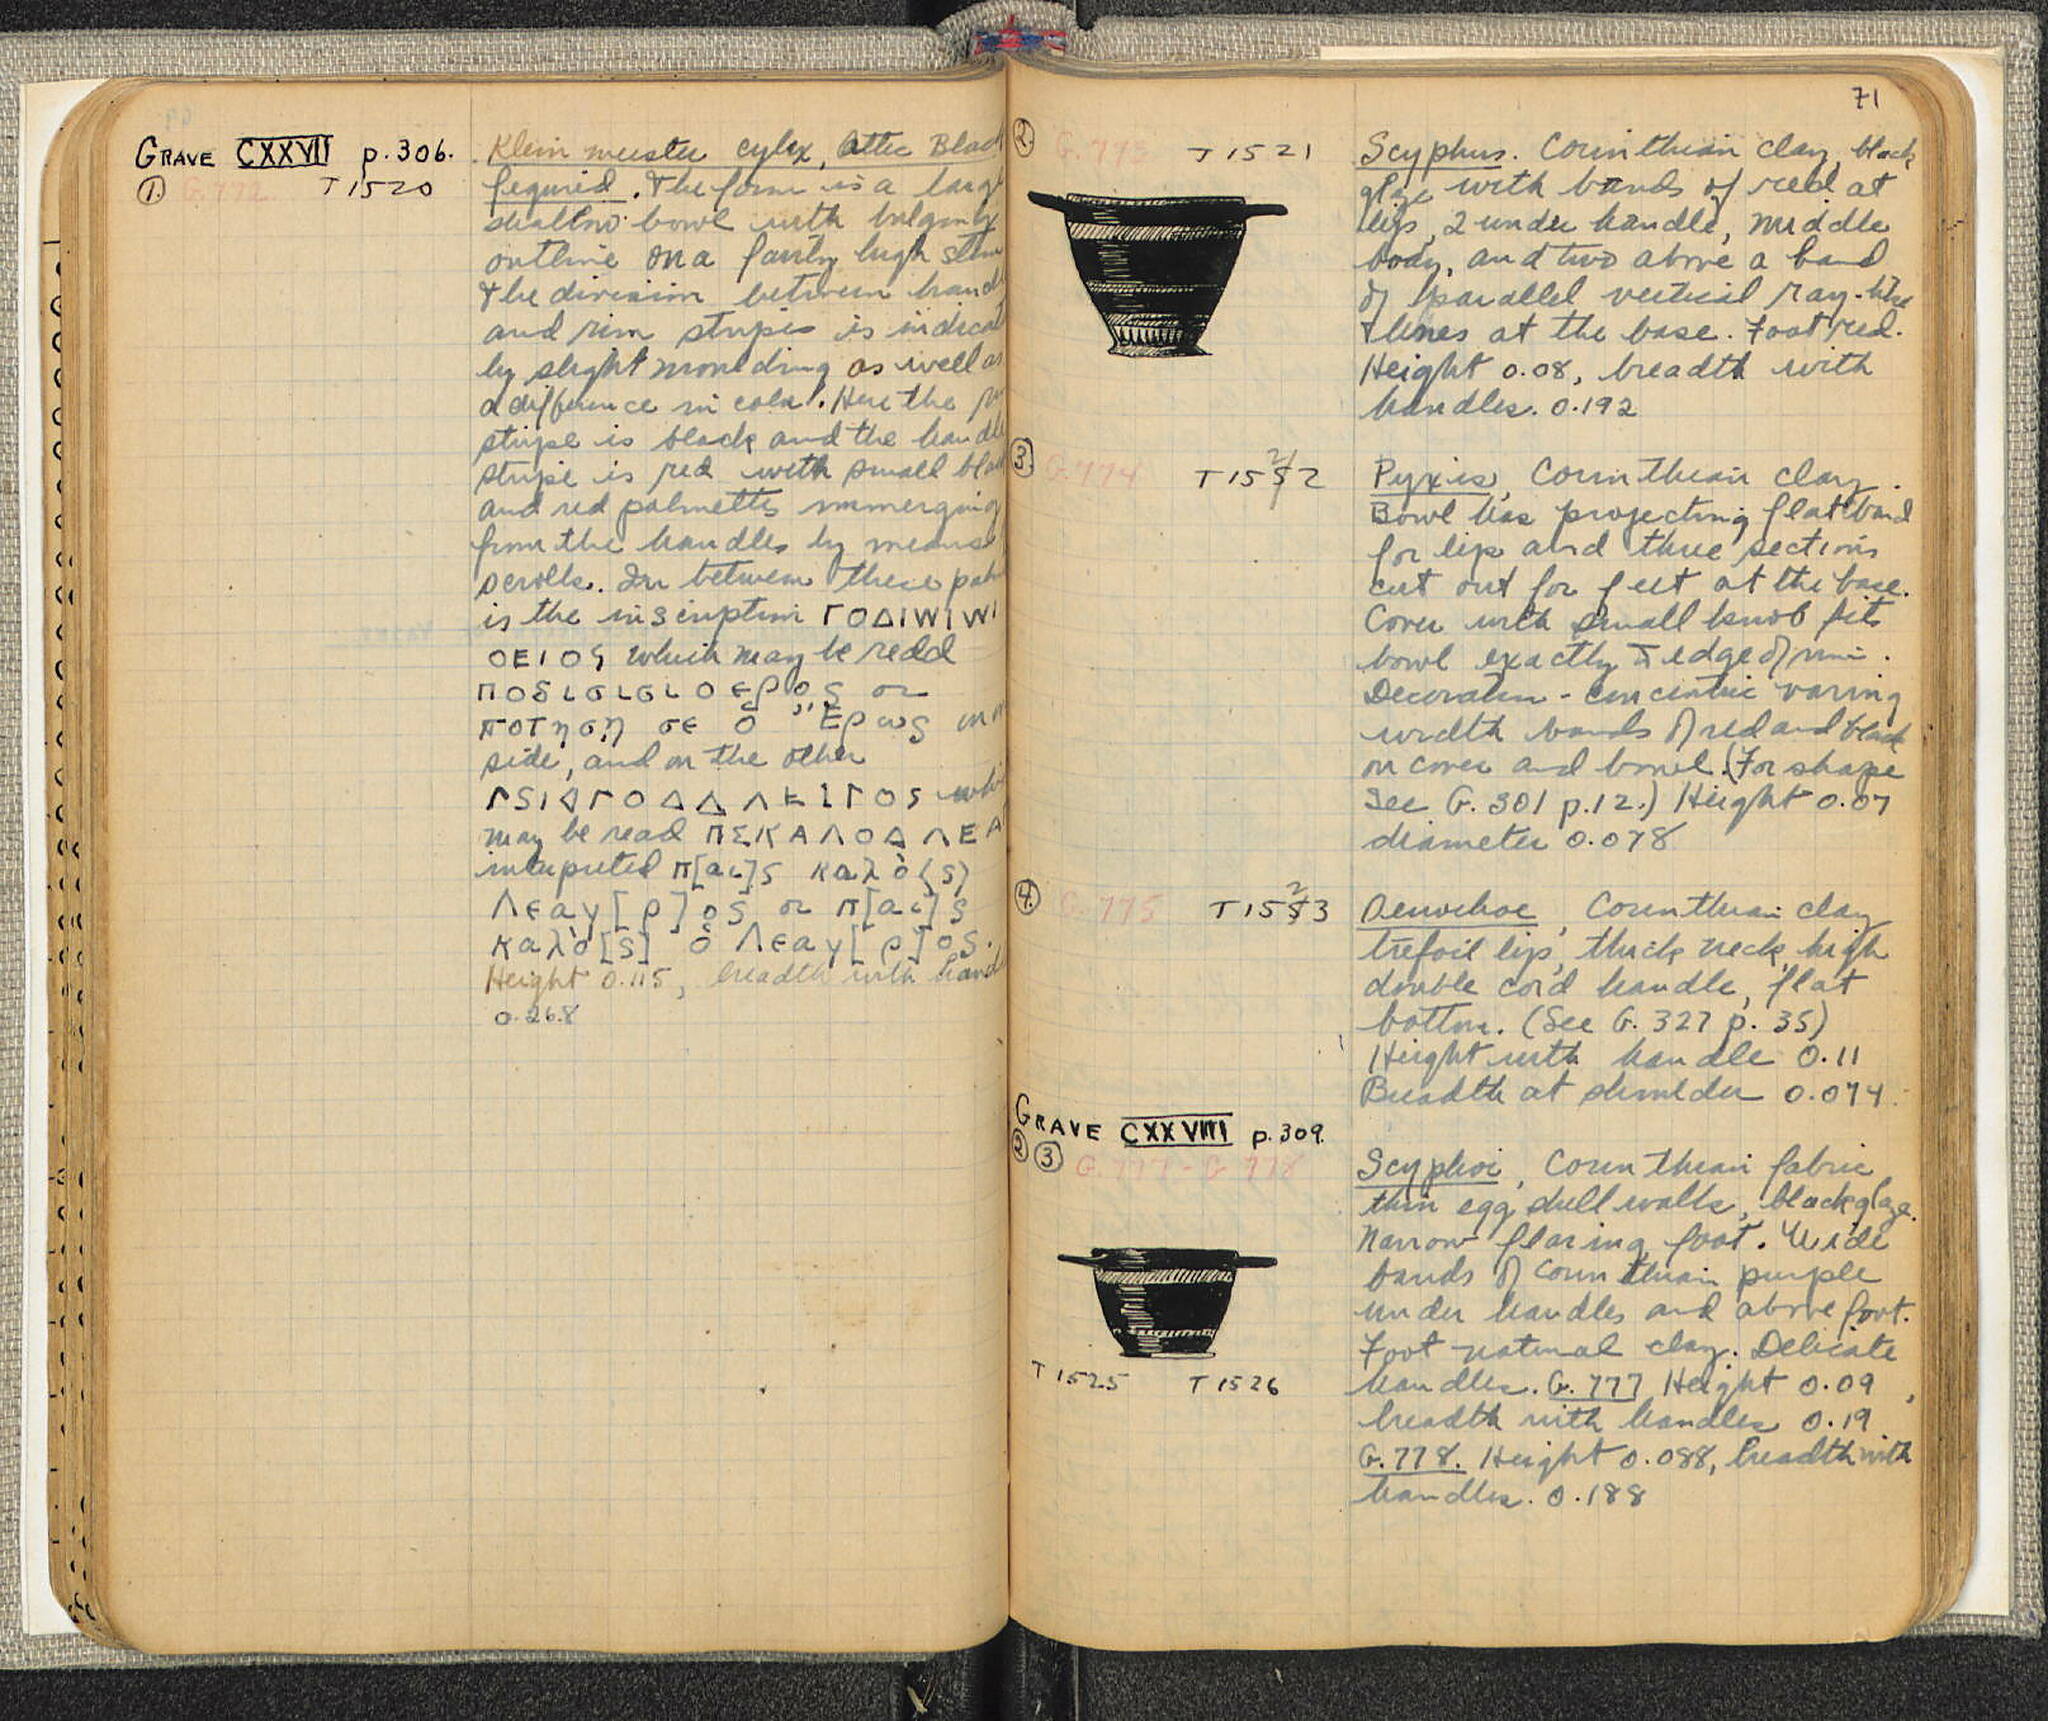 GRAVE CXXVII p.306.
1. G.772 T1520
Klein meister cylix, Attic Black
figured. The form is a large
shallow bowl with bulging
outline on a fairly high stem
The division between handle
and rim stripes is indicat
by slight moulding as well as
a difference in color. Here the
stripe is black and the handle
stripe is red with small black
and red palmettes immerging
from the handles by means
scrolls. In between these palm
is the inscription ΓΟΔΙWIWI
ΟΕΙΟϚ which may be read
ποδισισιοερος or
ποτηση σε ὁ Ἔρως on
side, and on the other
may be read ΠΣΚΑΛΟΔΛΕΑ
interpreted π[αι]ς καλὸ⟨ς⟩
Λεαγ[ρ]ος or π[αι]ς
καλὸ[ς] ὁ Λεαγ[ρ]ος.
Height 0.115, breadth with hand
0.268
71
2. T1521
Scyphus. Corinthian clay, black
glaze with bands of red at
lips, 2 under handle, middle
body, and two above a band
of parallel vertical ray-like
lines at the base. Foot red.
Height 0.08, breadth with
handles. 0.192
3. G.774 T1522
Pyxis, Corinthian clay.
Bowl has projecting flat band
for lip and three sections
cut out for feet at the base.
Cover with small knob fits
bowl exactly edge of rim.
Decoration - concentric varing
width bands of red and black
on cover and bowl. (For shape
See G. 301 p.12.) Height 0.07
diameter 0.078
4. G.775 T1523
Oenochoe, Corinthian clay
trefoil lip, thick neck, high
double cord handle, flat
bottom. (See G. 327 p. 35)
Height with handle 0.11
Breadth at shoulder 0.074
GRAVE CXXVIII p.309.
2 3 G.777 - G.778
Scyphoi, Corinthian fabric
thin egg shell walls, black glaze.
Narrow flaring foot. Wide
bands of Corinthian purple
under handles and above foot.
Foot natural clay. Delicate
handles. G. 777 Height 0.09,
breadth with handles 0.19
G.778. Height 0.088, breadth with
handles. 0.188
T1525 T1526